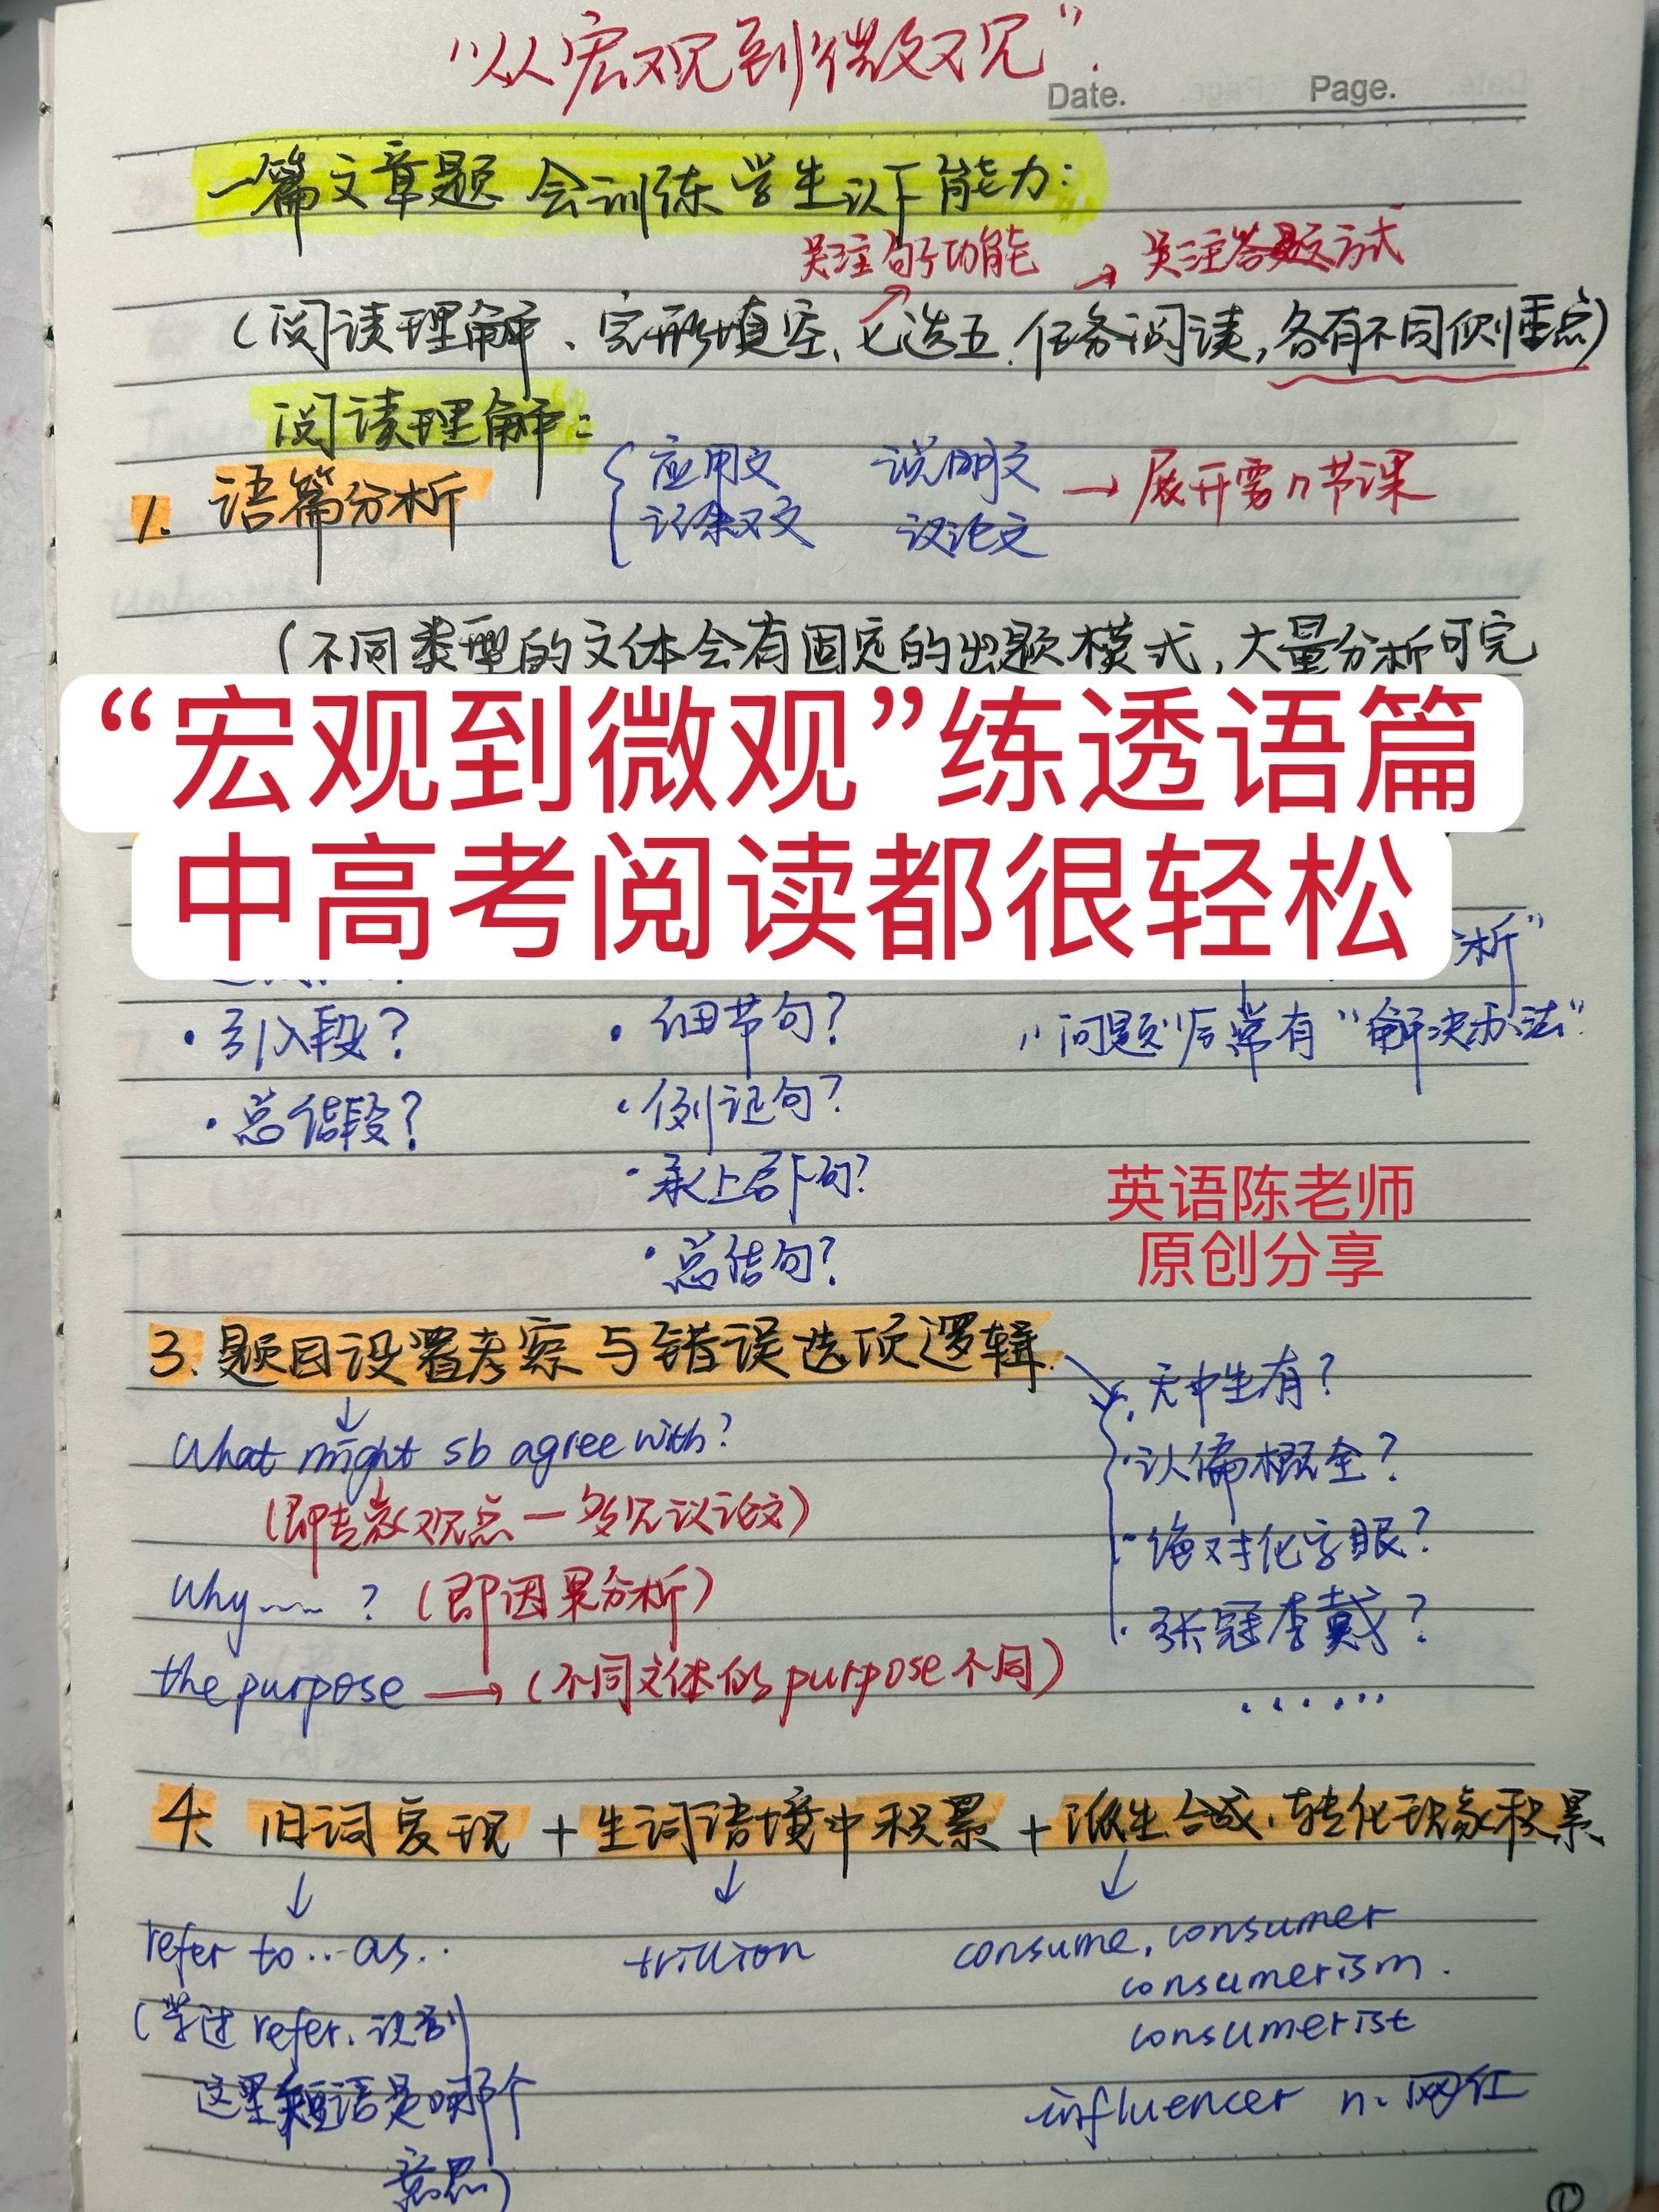 “从宏观到微观”.
Date. Page.
一篇文章题 会训练学生以下能力:
关注句子功能 → 关注答题方式
(阅读理解、完形填空、七选五、任务阅读,各有不同侧重点)
阅读理解:
1. 语篇分析
应用文 说明文
记叙文 议论文
→ 展开需n节课
(不同类型的文体会有固定的出题模式,大量分析可完
“宏观到微观”练透语篇
中高考阅读都很轻松
析”
·引入段?
·总结段?
·细节句?
·例证句?
·承上启下句?
·总结句?
“问题”后常有“解决办法”
英语陈老师
原创分享
3. 题目设置考察与错误选项逻辑.
↓
What might sb agree with?
(即专家观点一多见议论文)
Why ﹏ ? (即因果分析)
the purpose → (不同文体的purpose不同)
·无中生有?
·以偏概全?
·绝对化字眼?
·张冠李戴?
······
4. 旧词复现 + 生词语境中积累 + 派生.合成.转化现象积累
↓ ↓ ↓
refer to...as..
(学过refer.识别
这里短语是哪个
意思)
trillion
consume, consumer
consumerism.
consumerist
influencer n. 网红
①